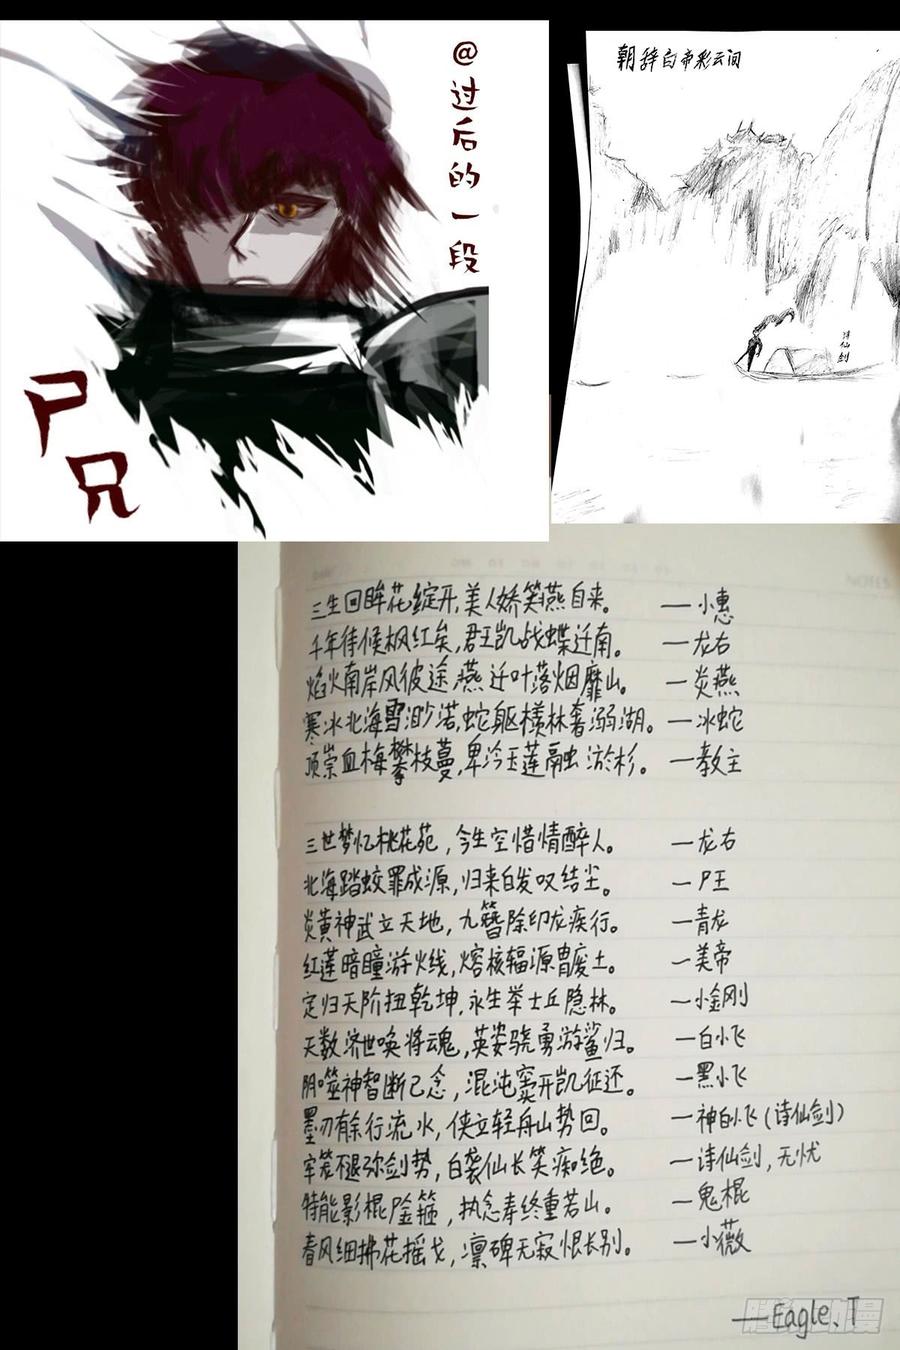 @过后的一段
尸兄
朝辞白帝彩云间
诗仙剑
三生回眸花绽开,美人娇笑燕自来。 —小惠
千年待候枫红矣,君王凯战蝶迁南。 —龙右
焰火南岸风彼途,燕迁叶落烟靡山。 —炎燕
寒冰北海雪渺诺,蛇躯樣林奢溺湖。 —冰蛇
顶崇血梅攀枝蔓,卑泠玉莲融淤杉。 —教主
三世梦忆桃花苑,今生空惜情醉人。 —龙右
北海踏蛟罪成源,归来白发叹结尘。 —尸王
炎黄神武立天地,九簪除印龙疾行。 —青龙
红莲暗瞳游火线,熔核辐源胄废土。 —美帝
定归天阶扭乾坤,永生举士丘隐林。 —小金刚
天数济世唤将魂,英姿骁勇游鲨归。 —白小飞
阴噬神智断己念,混沌窦开凯征还。 —黑小飞
墨刃有余行流水,侠立轻舟山势回。 —神白小飞(诗仙剑)
牢笼不退弥剑势,白袭仙长笑痴绝。 —诗仙剑,无忧
特能影棍 箍,执念奉终重若山。 —鬼棍
春风细拂花摇戈,凛碑无寂恨长别。 —小薇
—Eagle、T
腾讯动漫